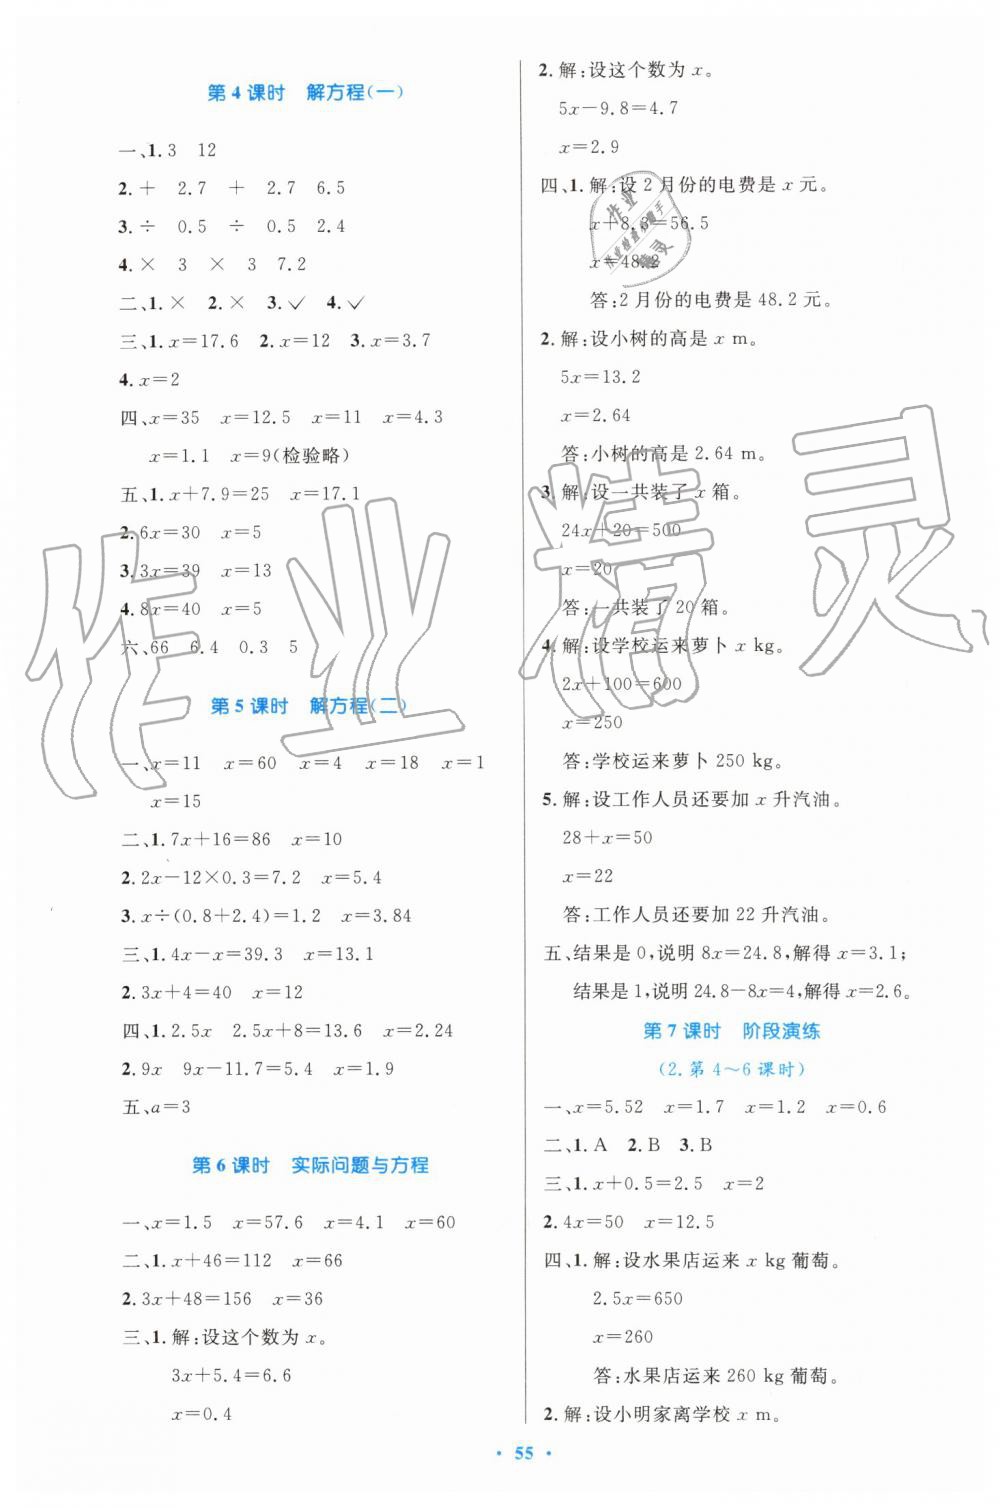 第4课时　解方程(一)
一、1.3　12
2.＋　2.7　＋　2.7　6.5
3.÷　0.5　÷　0.5　2.4
4.×　3　×　3　7.2
二、1.×　2.×　3.✓　4.✓
三、1.x=17.6　2.x=12　3.x=3.7
4.x=2
四、x=35　x=12.5　x=11　x=4.3
x=1.1　x=9(检验略)
五、1.x+7.9=25　x=17.1
2.6x=30　x=5
3.3x=39　x=13
4.8x=40　x=5
六、66　6.4　0.3　5
第5课时　解方程(二)
一、x=11　x=60　x=4　x=18　x=1
x=15
二、1.7x+16=86　x=10
2.2x−12×0.3=7.2　x=5.4
3.x÷(0.8+2.4)=1.2　x=3.84
三、1.4x−x=39.3　x=13.1
2.3x+4=40　x=12
四、1.2.5x　2.5x+8=13.6　x=2.24
2.9x　9x−11.7=5.4　x=1.9
五、a=3
第6课时　实际问题与方程
一、x=1.5　x=57.6　x=4.1　x=60
二、1.x+46=112　x=66
2.3x+48=156　x=36
三、1.解:设这个数为x。
3x+5.4=6.6
x=0.4
2.解:设这个数为x。
5x−9.8=4.7
x=2.9
四、1.解:设2月份的电费是x元。
x+8.3=56.5
x=48.2
答:2月份的电费是48.2元。
2.解:设小树的高是x m。
5x=13.2
x=2.64
答:小树的高是2.64 m。
3.解:设一共装了x箱。
24x+20=500
x=20
答:一共装了20箱。
4.解:设学校运来萝卜x kg。
2x+100=600
x=250
答:学校运来萝卜250 kg。
5.解:设工作人员还要加x升汽油。
28+x=50
x=22
答:工作人员还要加22升汽油。
五、结果是0,说明8x=24.8,解得x=3.1;
结果是1,说明24.8−8x=4,解得x=2.6。
第7课时　阶段演练
(2.第4～6课时)
一、x=5.52　x=1.7　x=1.2　x=0.6
二、1.A　2.B　3.B
三、1.x+0.5=2.5　x=2
2.4x=50　x=12.5
四、1.解:设水果店运来x kg葡萄。
2.5x=650
x=260
答:水果店运来260 kg葡萄。
2.解:设小明家离学校x m。
• 55 •
作业精灵